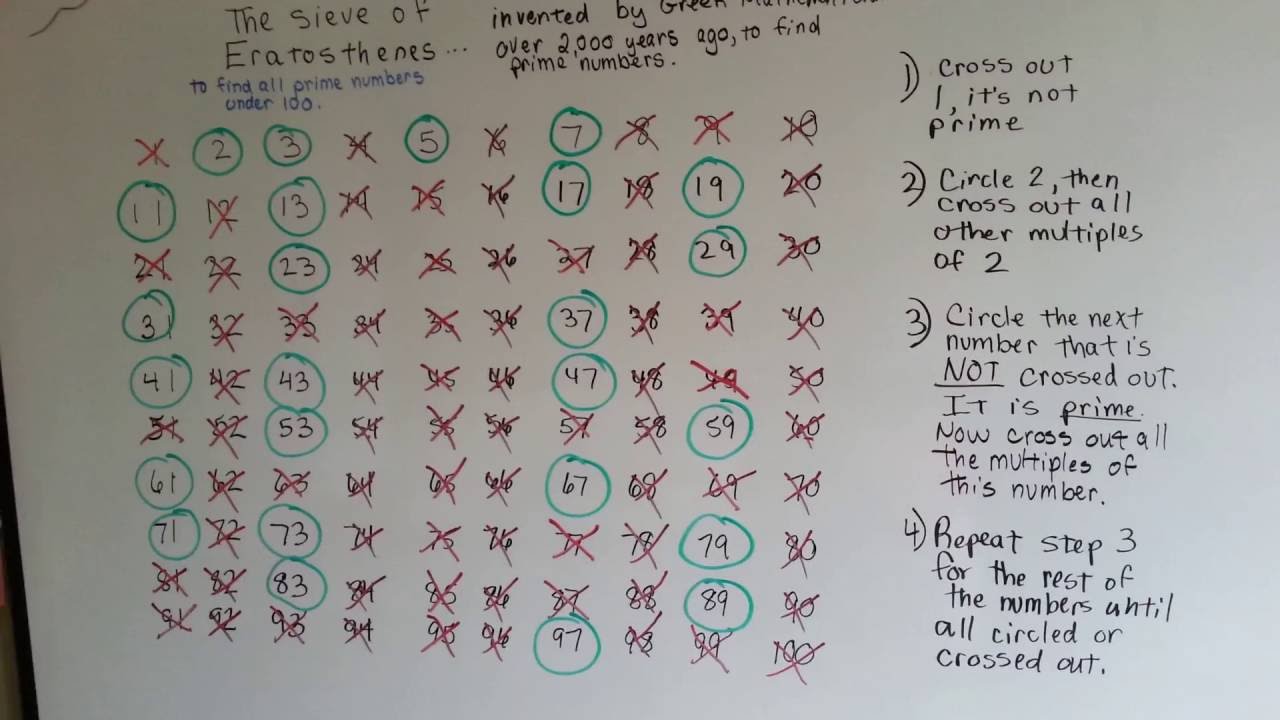 The sieve of
Eratosthenes...
to find all prime numbers
under 100.
invented by Greek
over 2,000 years ago, to find
prime numbers.
1 2 3 4 5 6 7 8 9 10
11 12 13 14 15 16 17 18 19 20
21 22 23 24 25 26 27 28 29 30
31 32 33 34 35 36 37 38 39 40
41 42 43 44 45 46 47 48 49 50
51 52 53 54 55 56 57 58 59 60
61 62 63 64 65 66 67 68 69 70
71 72 73 74 75 76 77 78 79 80
81 82 83 84 85 86 87 88 89 90
91 92 93 94 95 96 97 98 99 100
1) cross out
1, it's not
prime
2) Circle 2, then
cross out all
other multiples
of 2
3) Circle the next
number that is
NOT crossed out.
It is prime.
Now cross out all
the multiples of
this number.
4) Repeat step 3
for the rest of
the numbers until
all circled or
crossed out.